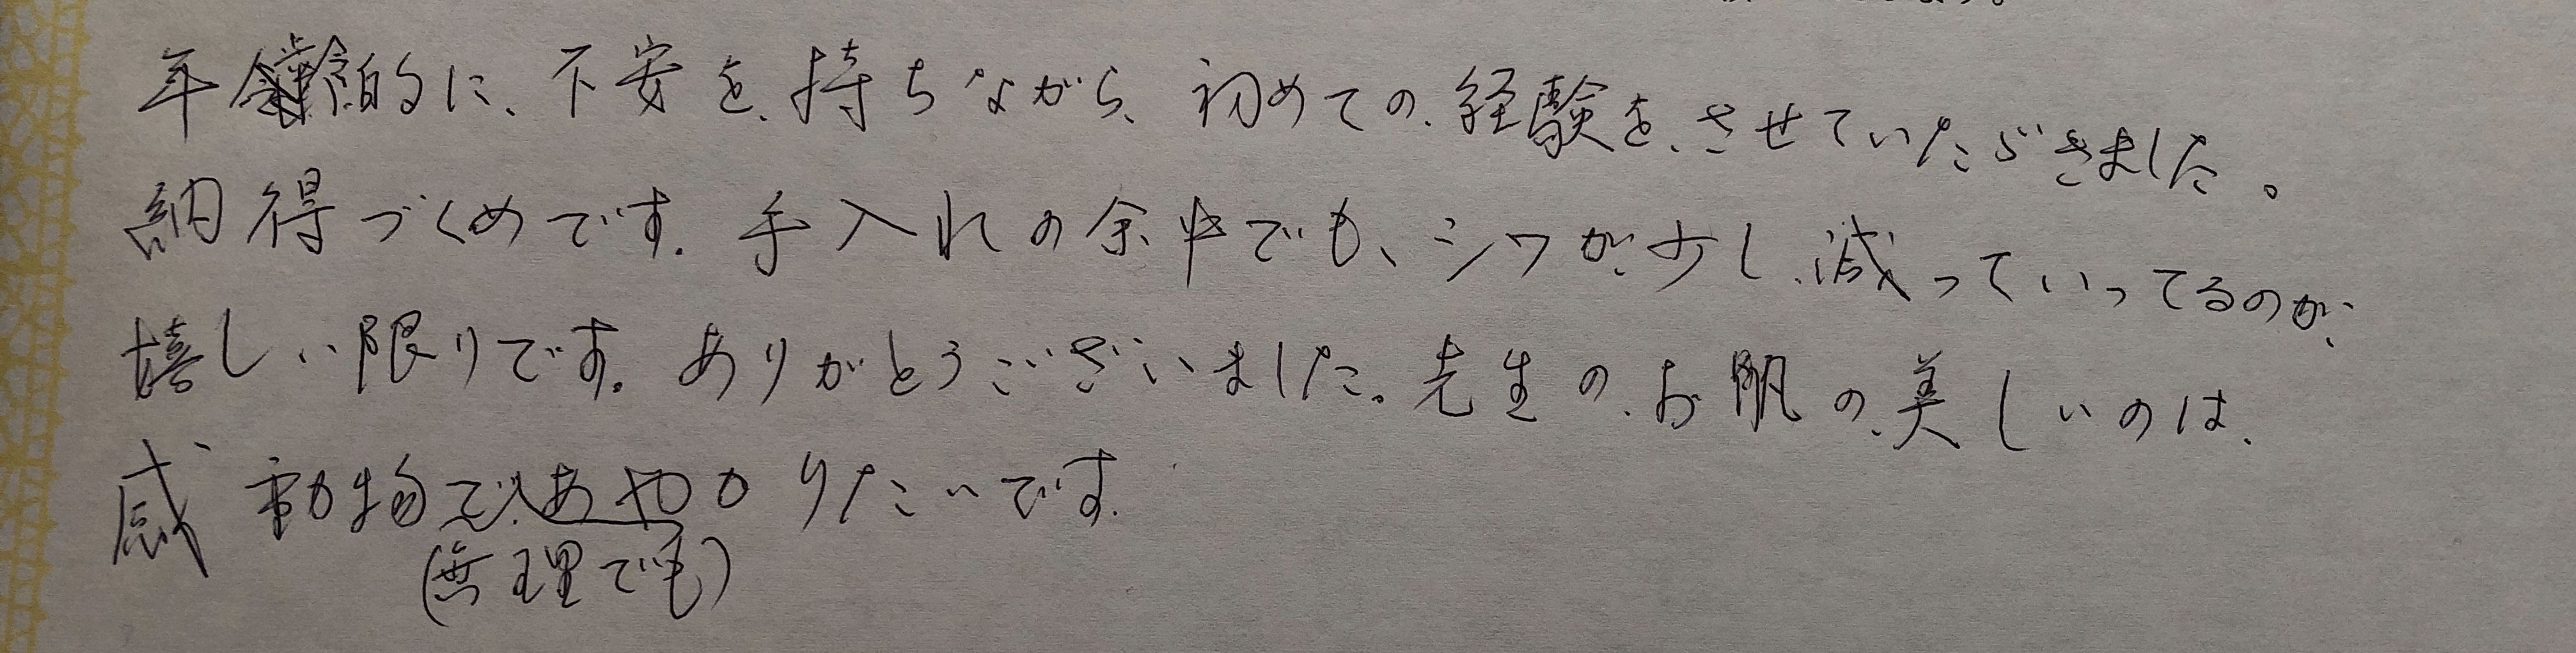 年齢的に、不安を、持ちながら、初めての、経験を、させていただきました。
納得づくめです。手入れの余中でも、シワが、少し、減っていってるのが、
嬉しい限りです。ありがとうございました。先生の、お肌の、美しいのは、
感動物で、あやかりたいです。
(無理でも)